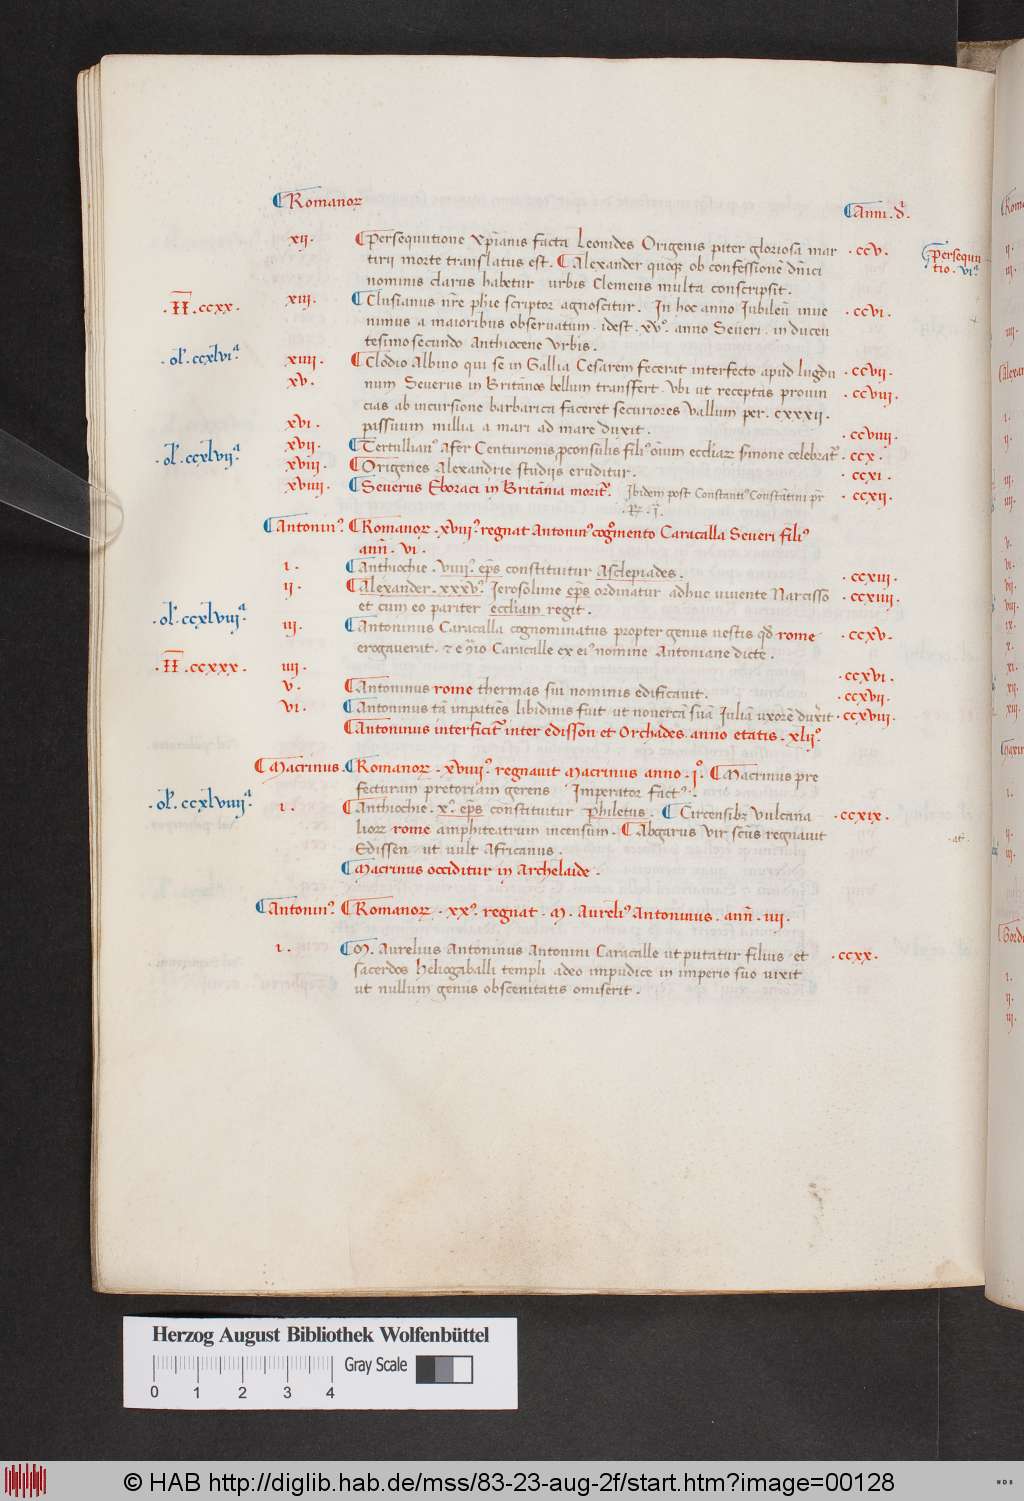 Romanoꝝ
Anni . d̄ı .
xij . Persequutione xp̄ianis facta Leonides Origenis pater gloriosa mar . ccv . Persequu
tirii morte translatus est . Alexander quoqꝫ ob confessionē dn̄ici tio . vi .
nominis clarus habetur urbis Clemens multa conscripsit .
. ĪĪ . ccxx . xiij . Clusianus nr̄e phīe scriptor agnoscitur . In hoc anno Iubileū inue . ccvi .
nimus a maioribus obseruatum . idest . xv° . anno Seueri . in ducen
tesimo secundo Anthiocene urbis .
. ol̄ . ccxlvi a xiiij . Clodio Albino qui se in Gallia Cesarem fecerat interfecto apud lugdu . ccvij .
xv . num Seuerus in Britānos bellum transfert . Vbi ut receptas prouin . ccviij .
cias ab incursione barbarica faceret securiores vallum per . cxxxij .
xvi . passuum millia a mari ad mare duxit . . ccviiij .
. ol̄ . ccxlvij a xvij . Tertullian' Afer Centurionis ꝓconsulis fili' oīum eccl̄iaꝝ sīmone celebrat̄ . ccx .
xviij . Origenes Alexandrie studijs eruditur . . ccxi .
xviiij . Seuerus Eboraci in Britānia morit̄ . Ibidem post Constanti' Constātini pr̄ . ccxij .
Antonin' . Romanoꝝ . xviij° . regnat Antonin' cog°mento Caracalla Seueri fili'
ann̄ . vi .
i . Anthiochie . viiij° . ep̄s constituitur Asclepiades . . ccxiij .
ij . Alexander . xxxv° . Ierosolime ep̄s ordinatur adhuc uiuente Narcisso . ccxiiij .
et cum eo pariter eccl̄iam regit .
. ol̄ . ccxlviij a iij . Antoninus Caracalla cognominatus propter genus uestis qd̄ rome . ccxv .
erogauerat . Caracalle ex ei' nomine Antoniane dicte .
. ĪĪ . ccxxx . iiij . . ccxvi .
v . Antoninus rome thermas sui nominis edificauit . . ccxvij .
vi . Antoninus tā impatiēs libidinis fuit ut nouercā suā Iuliā uxorē duxerit . ccxviij .
Antoninus interficit̄ inter edisson et Orchades . anno etatis . xlij° .
Macrinus . Romanoꝝ . xviiij° . regnauit Macrinus anno . i° . Macrinus pre
fecturam pretoriam gerens Imperator fact' .
. ol̄ . ccxlviiij a i . Anthiochie . x° . ep̄s constituitur philetus . Circensibꝫ vulcana . ccxix .
lioꝝ rome amphiteatrum incensum . Abgarus vir scūs regnauit
Edissen ut uult Africanus .
Macrinus occiditur in Archelaide .
Antonin' . Romanoꝝ . xx° . regnat . M . Aureli' Antoninus . ann̄ . iiij .
i . M . Aurelius Antoninus Antonini Caracalle ut putatur filius et . ccxx .
sacerdos heliogaballi templi adeo impudice in imperio suo uixit
ut nullum genus obscenitatis omiserit .
Herzog August Bibliothek Wolfenbüttel
Gray Scale
0 1 2 3 4
© HAB http://diglib.hab.de/mss/83-23-aug-2f/start.htm?image=00128